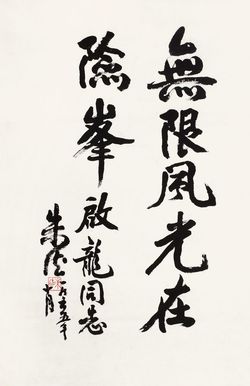 無限風光在
險峯 啟龍同志
朱德
一九六五年
十月